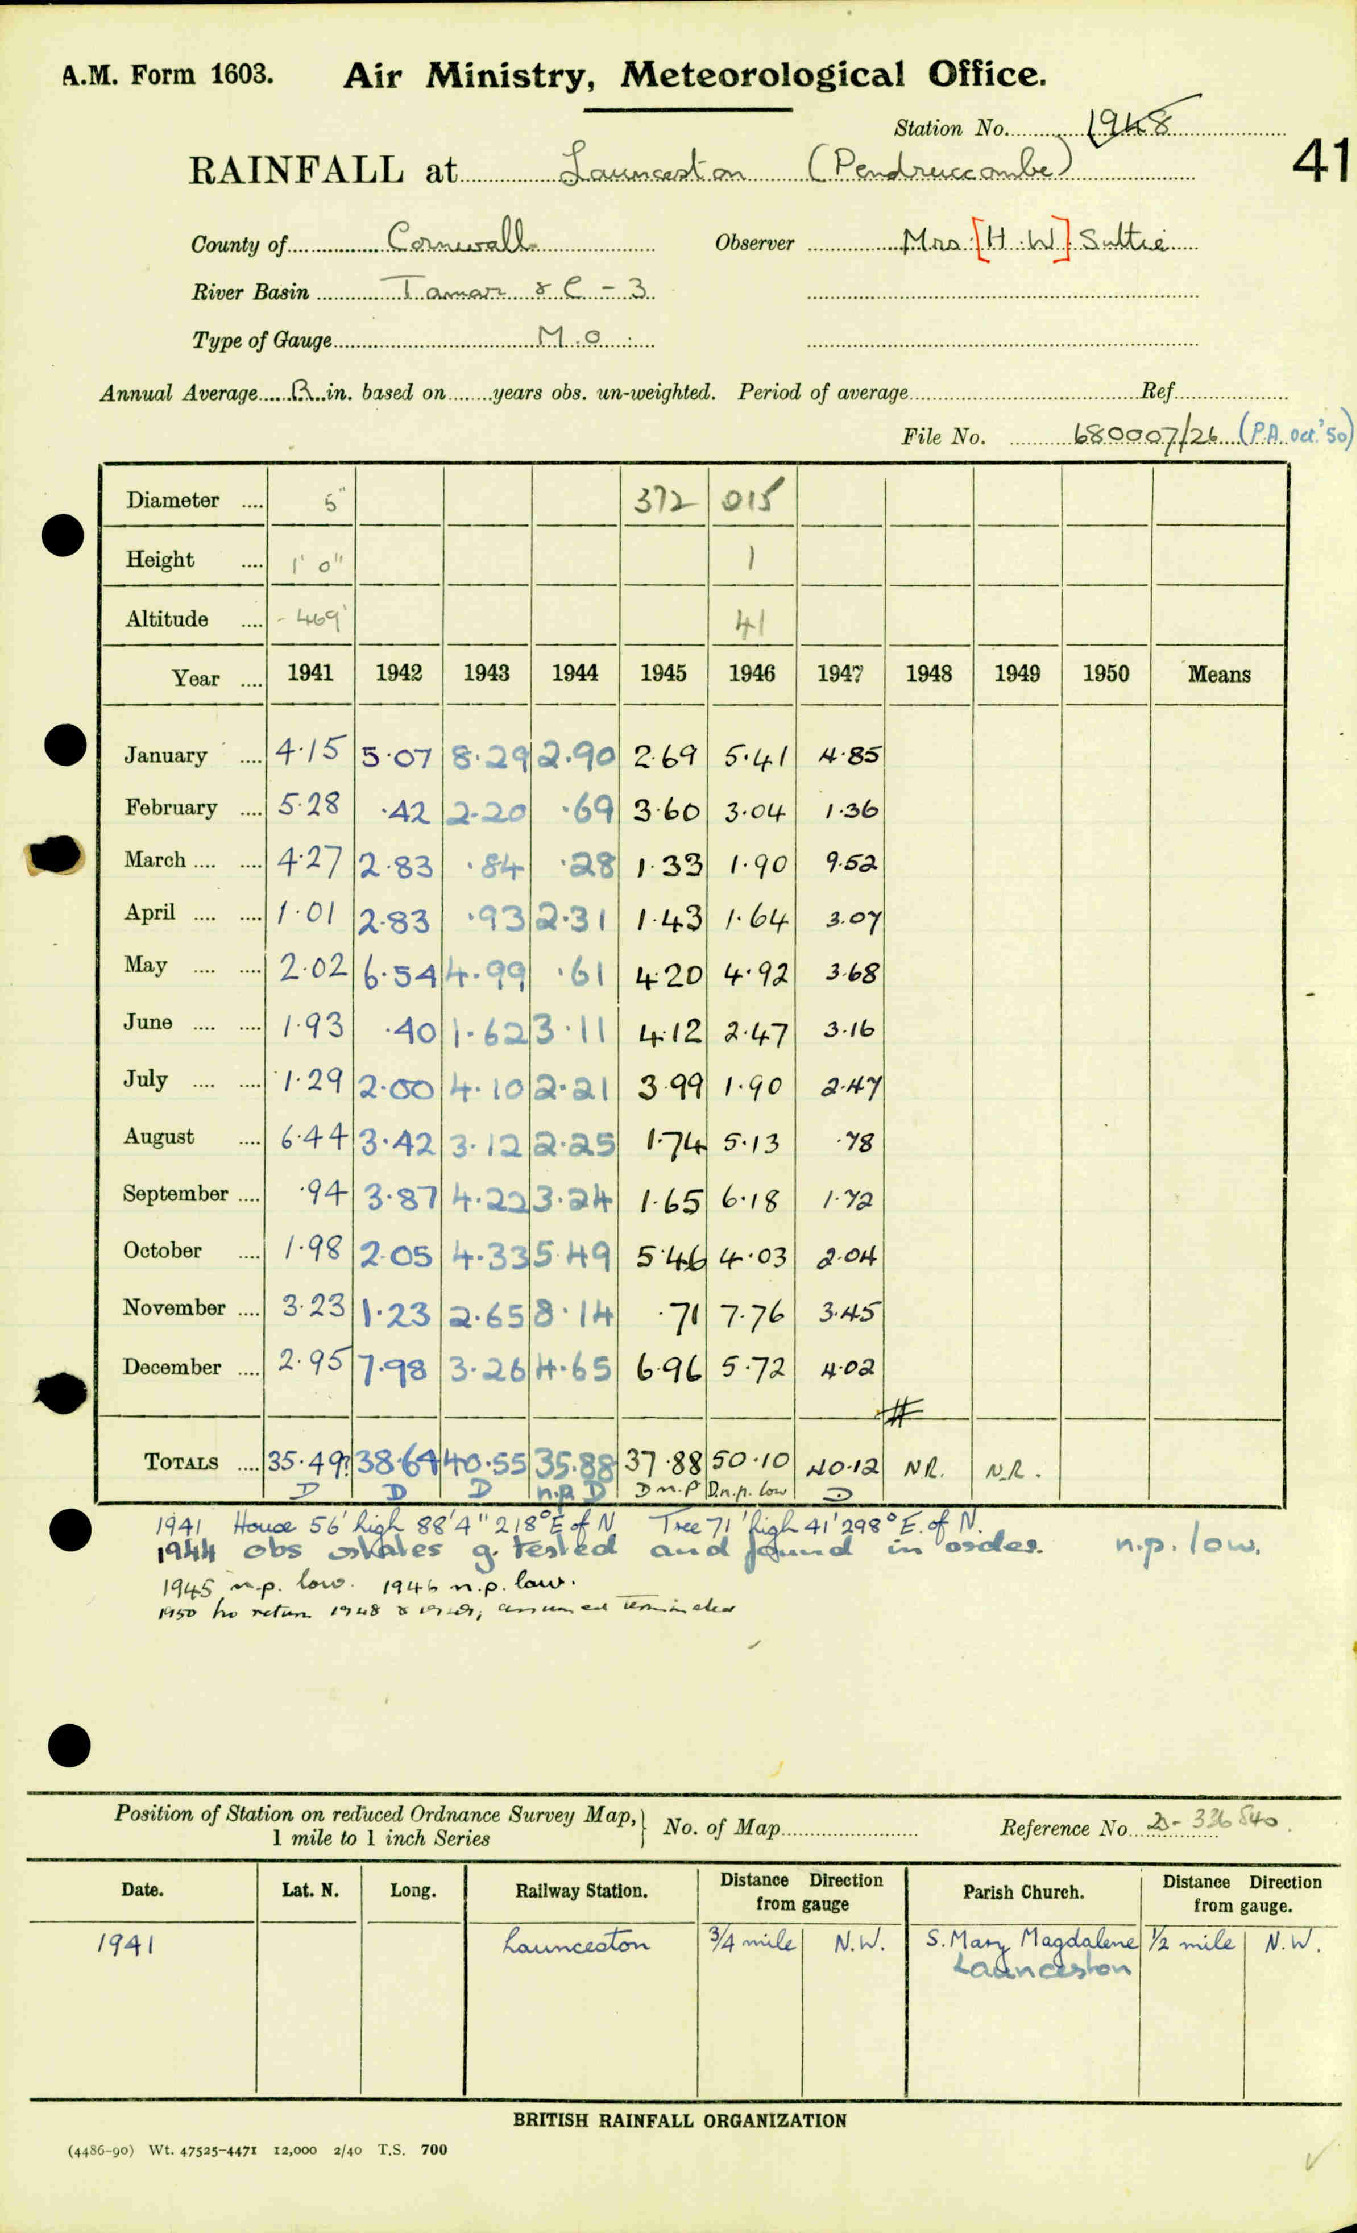 A.M. Form 1603. Air Ministry, Meteorological Office.
Station No. 1948
41
RAINFALL at Launceston (Pendruccombe)
County of Cornwall Observer Mrs [H.W] Suttie
River Basin Tamar & C - 3
Type of Gauge M.O.
Annual Average R in. based on years obs. un-weighted. Period of average Ref
File No. 680007/26 (P.A. Oct.'50)
Diameter .... 5" 372 015
Height .... 1' 0" 1
Altitude .... - 469' 41
Year .... 1941 1942 1943 1944 1945 1946 1947 1948 1949 1950 Means
January .... 4.15 5.07 8.29 2.90 2.69 5.41 4.85
February .... 5.28 .42 2.20 .69 3.60 3.04 1.36
March .... .... 4.27 2.83 .84 .28 1.33 1.90 9.52
April .... .... 1.01 2.83 .93 2.31 1.43 1.64 3.07
May .... .... 2.02 6.54 4.99 .61 4.20 4.92 3.68
June .... .... 1.93 .40 1.62 3.11 4.12 2.47 3.16
July .... .... 1.29 2.00 4.10 2.21 3.99 1.90 2.47
August .... 6.44 3.42 3.12 2.25 1.74 5.13 .78
September .... .94 3.87 4.22 3.24 1.65 6.18 1.72
October .... 1.98 2.05 4.33 5.49 5.46 4.03 2.04
November .... 3.23 1.23 2.65 8.14 .71 7.76 3.45
December .... 2.95 7.98 3.26 4.65 6.96 5.72 4.02
#
TOTALS .... 35.49? 38.64 40.55 35.88 37.88 50.10 40.12 NR. N.R.
D D D n.p. D D n.P D.n.p. low D
1941 House 56' high 88'4" 218° E of N Tree 71' high 41' 298° E. of N.
1944 obs states g. tested and found in order. n.p. low.
1945 n.p. low. 1946 n.p. low.
1950 No return 1948 & 1949, assumed terminated
Position of Station on reduced Ordnance Survey Map, 
1 mile to 1 inch Series } No. of Map Reference No 20- 336 840.
Date. Lat. N. Long. Railway Station. Distance Direction from gauge Parish Church. Distance Direction from gauge.
1941 Launceston 3/4 mile N.W. S. Mary Magdalene 1/2 mile N.W.
Launceston
BRITISH RAINFALL ORGANIZATION
(4486-90) Wt. 47525-4471 12,000 2/40 T.S. 700